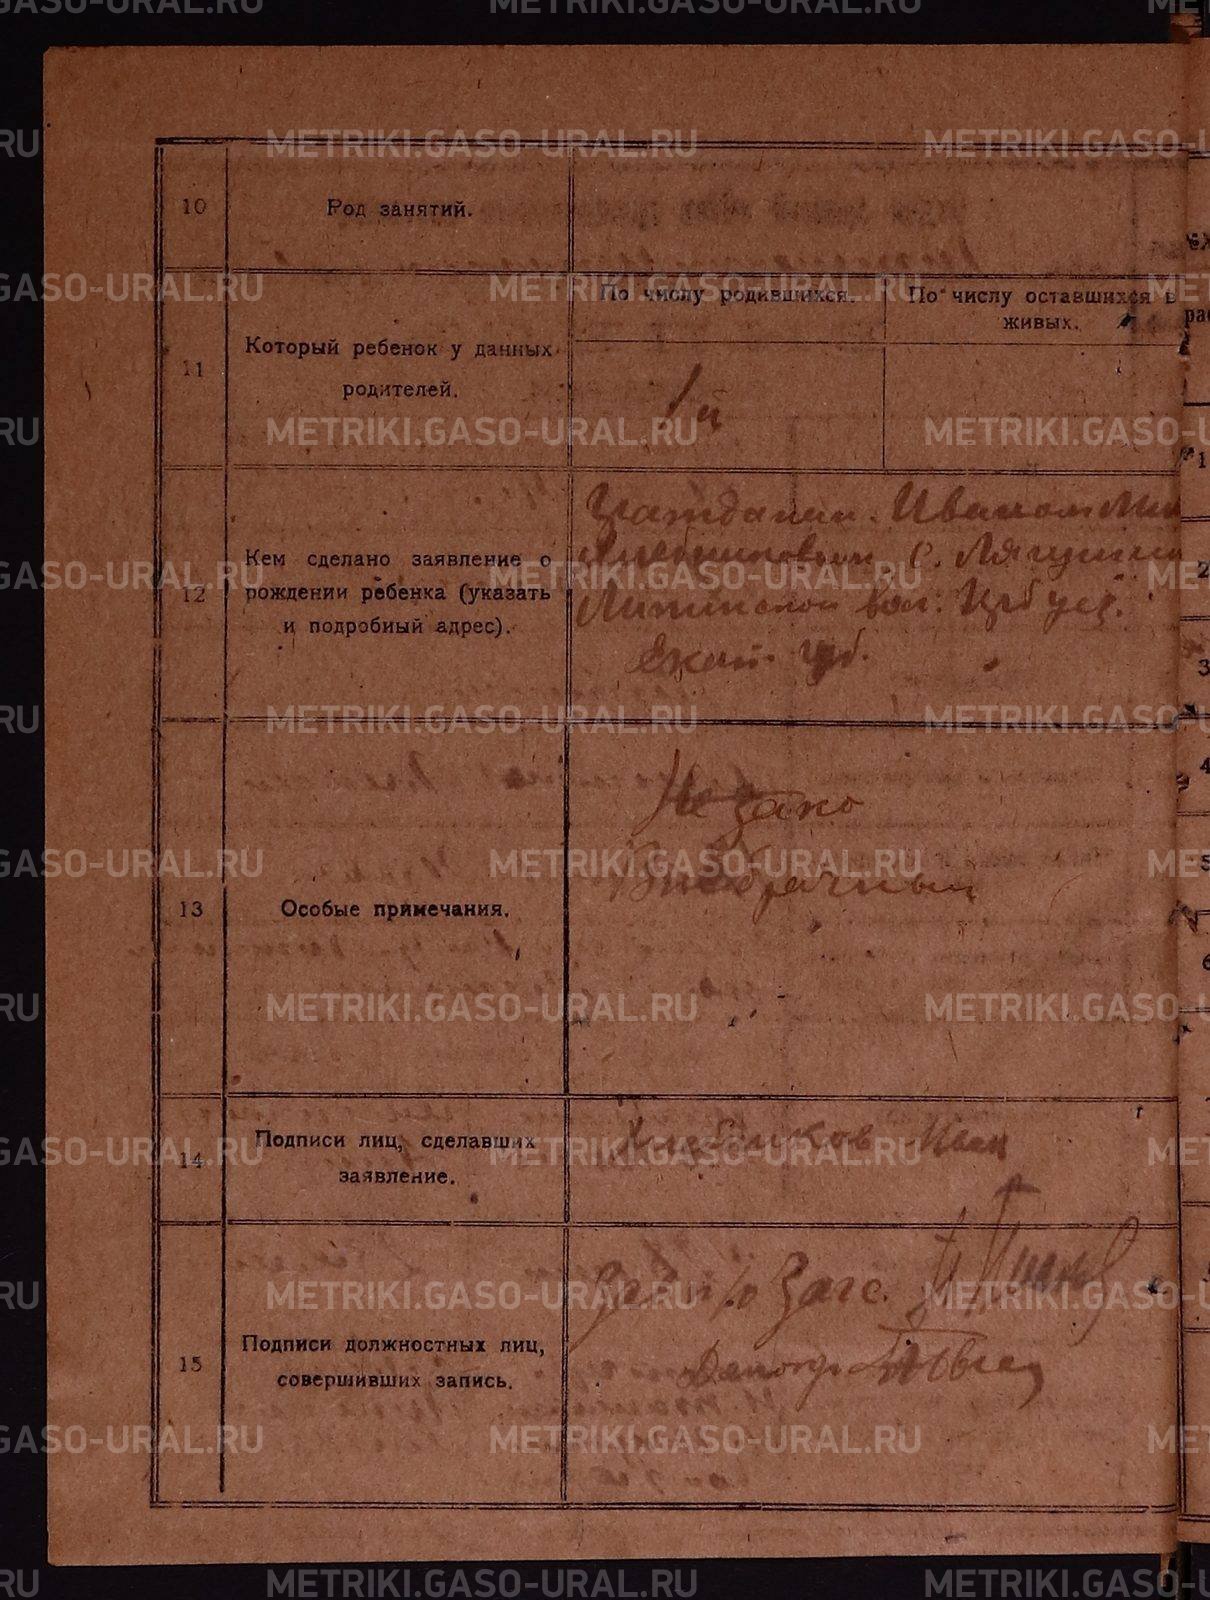 10
Род занятий.
11
Который ребенок у данных
родителей.
По числу родившихся.
По числу оставшихся в
живых.
1й
12
Кем сделано заявление о
рождении ребенка (указать
и подробный адрес).
Гражданин. Иваном
с.
вол. уез.
Екат. губ.
13
Особые примечания.
Незако
Внебрачный
14
Подписи лиц, сделавших
заявление.
15
Подписи должностных лиц,
совершивших запись.
Зав п/о Загс.
METRIKI.GASO-URAL.RU